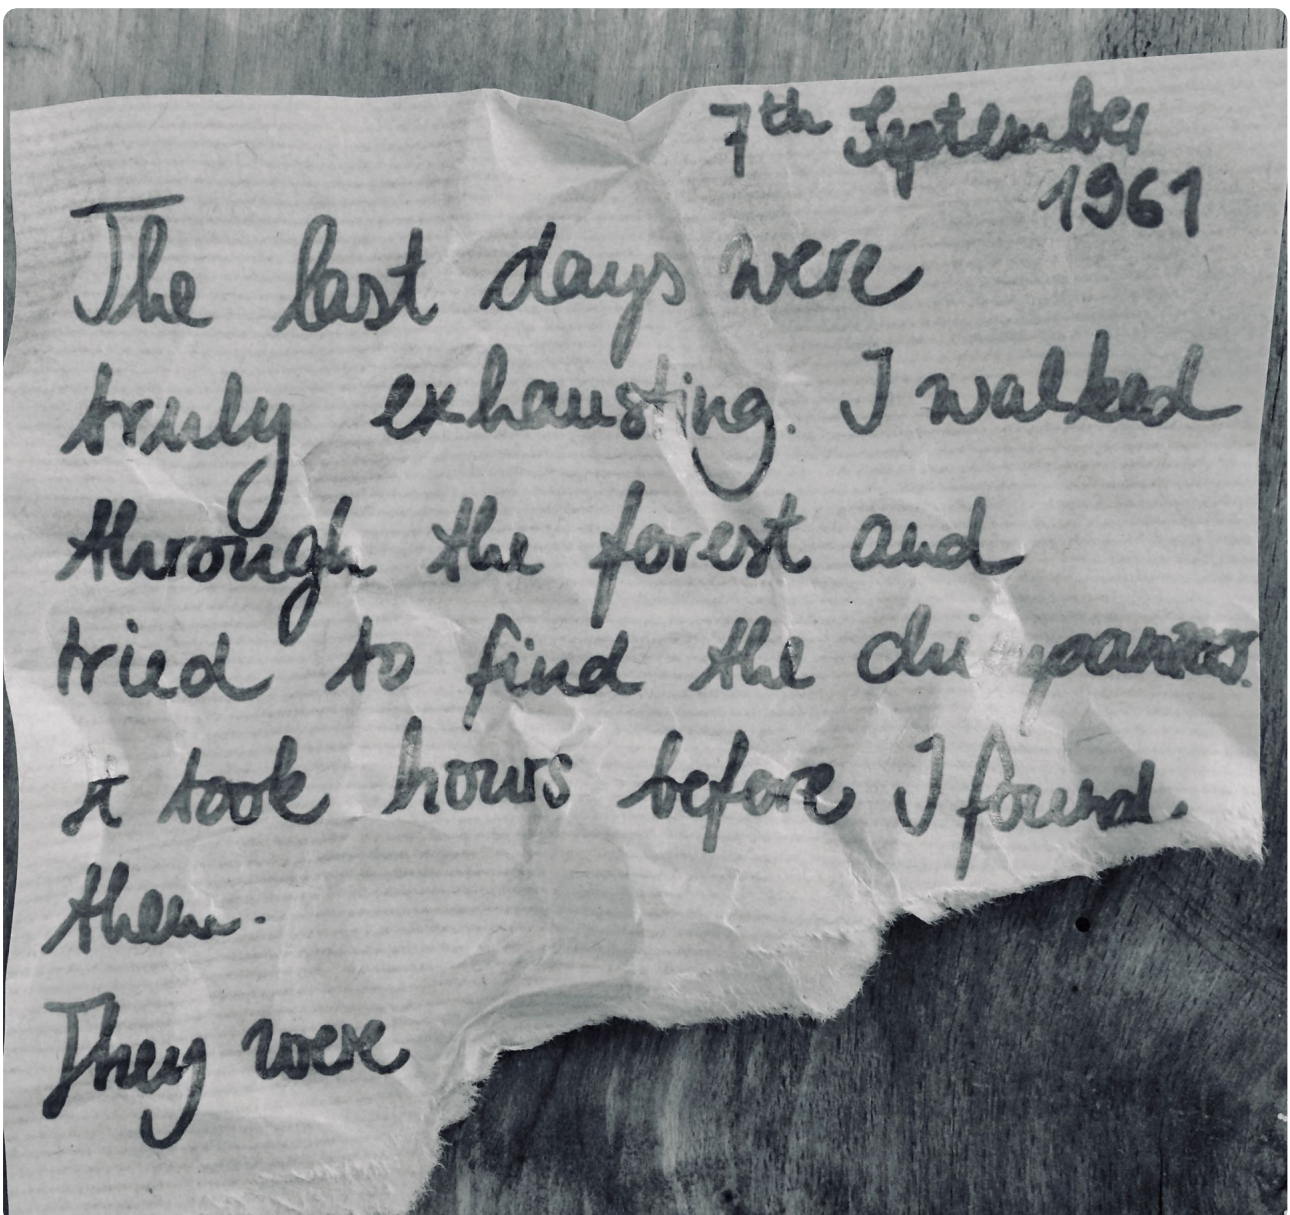 7th September
1961
The last days were
truly exhausting. I walked
through the forest and
tried to find the
It took hours before I found
them.
They were